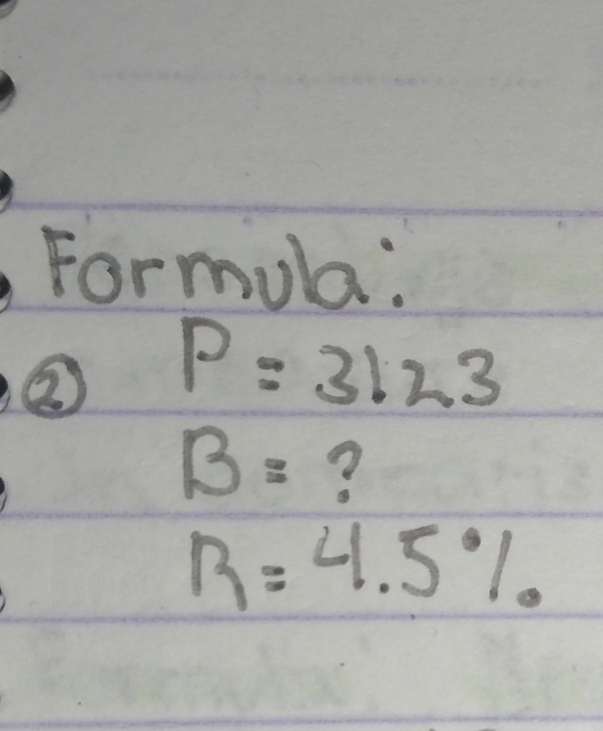 Formula:
② P = 3123
B = ?
R = 4.5%